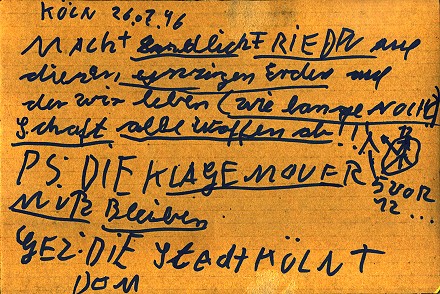 KÖLN 26.07.96
MACHt Endlich FRIEDN auf
dieser, einzigen Erden auf
der wir leben (wie lange NOCH)
Schaft alle Waffen ab!!!
PS. DIE KLAGEMAUER 5 VOR
MUß Bleiben 12...
GEZ: DIE StadtKÖLN +
DOM